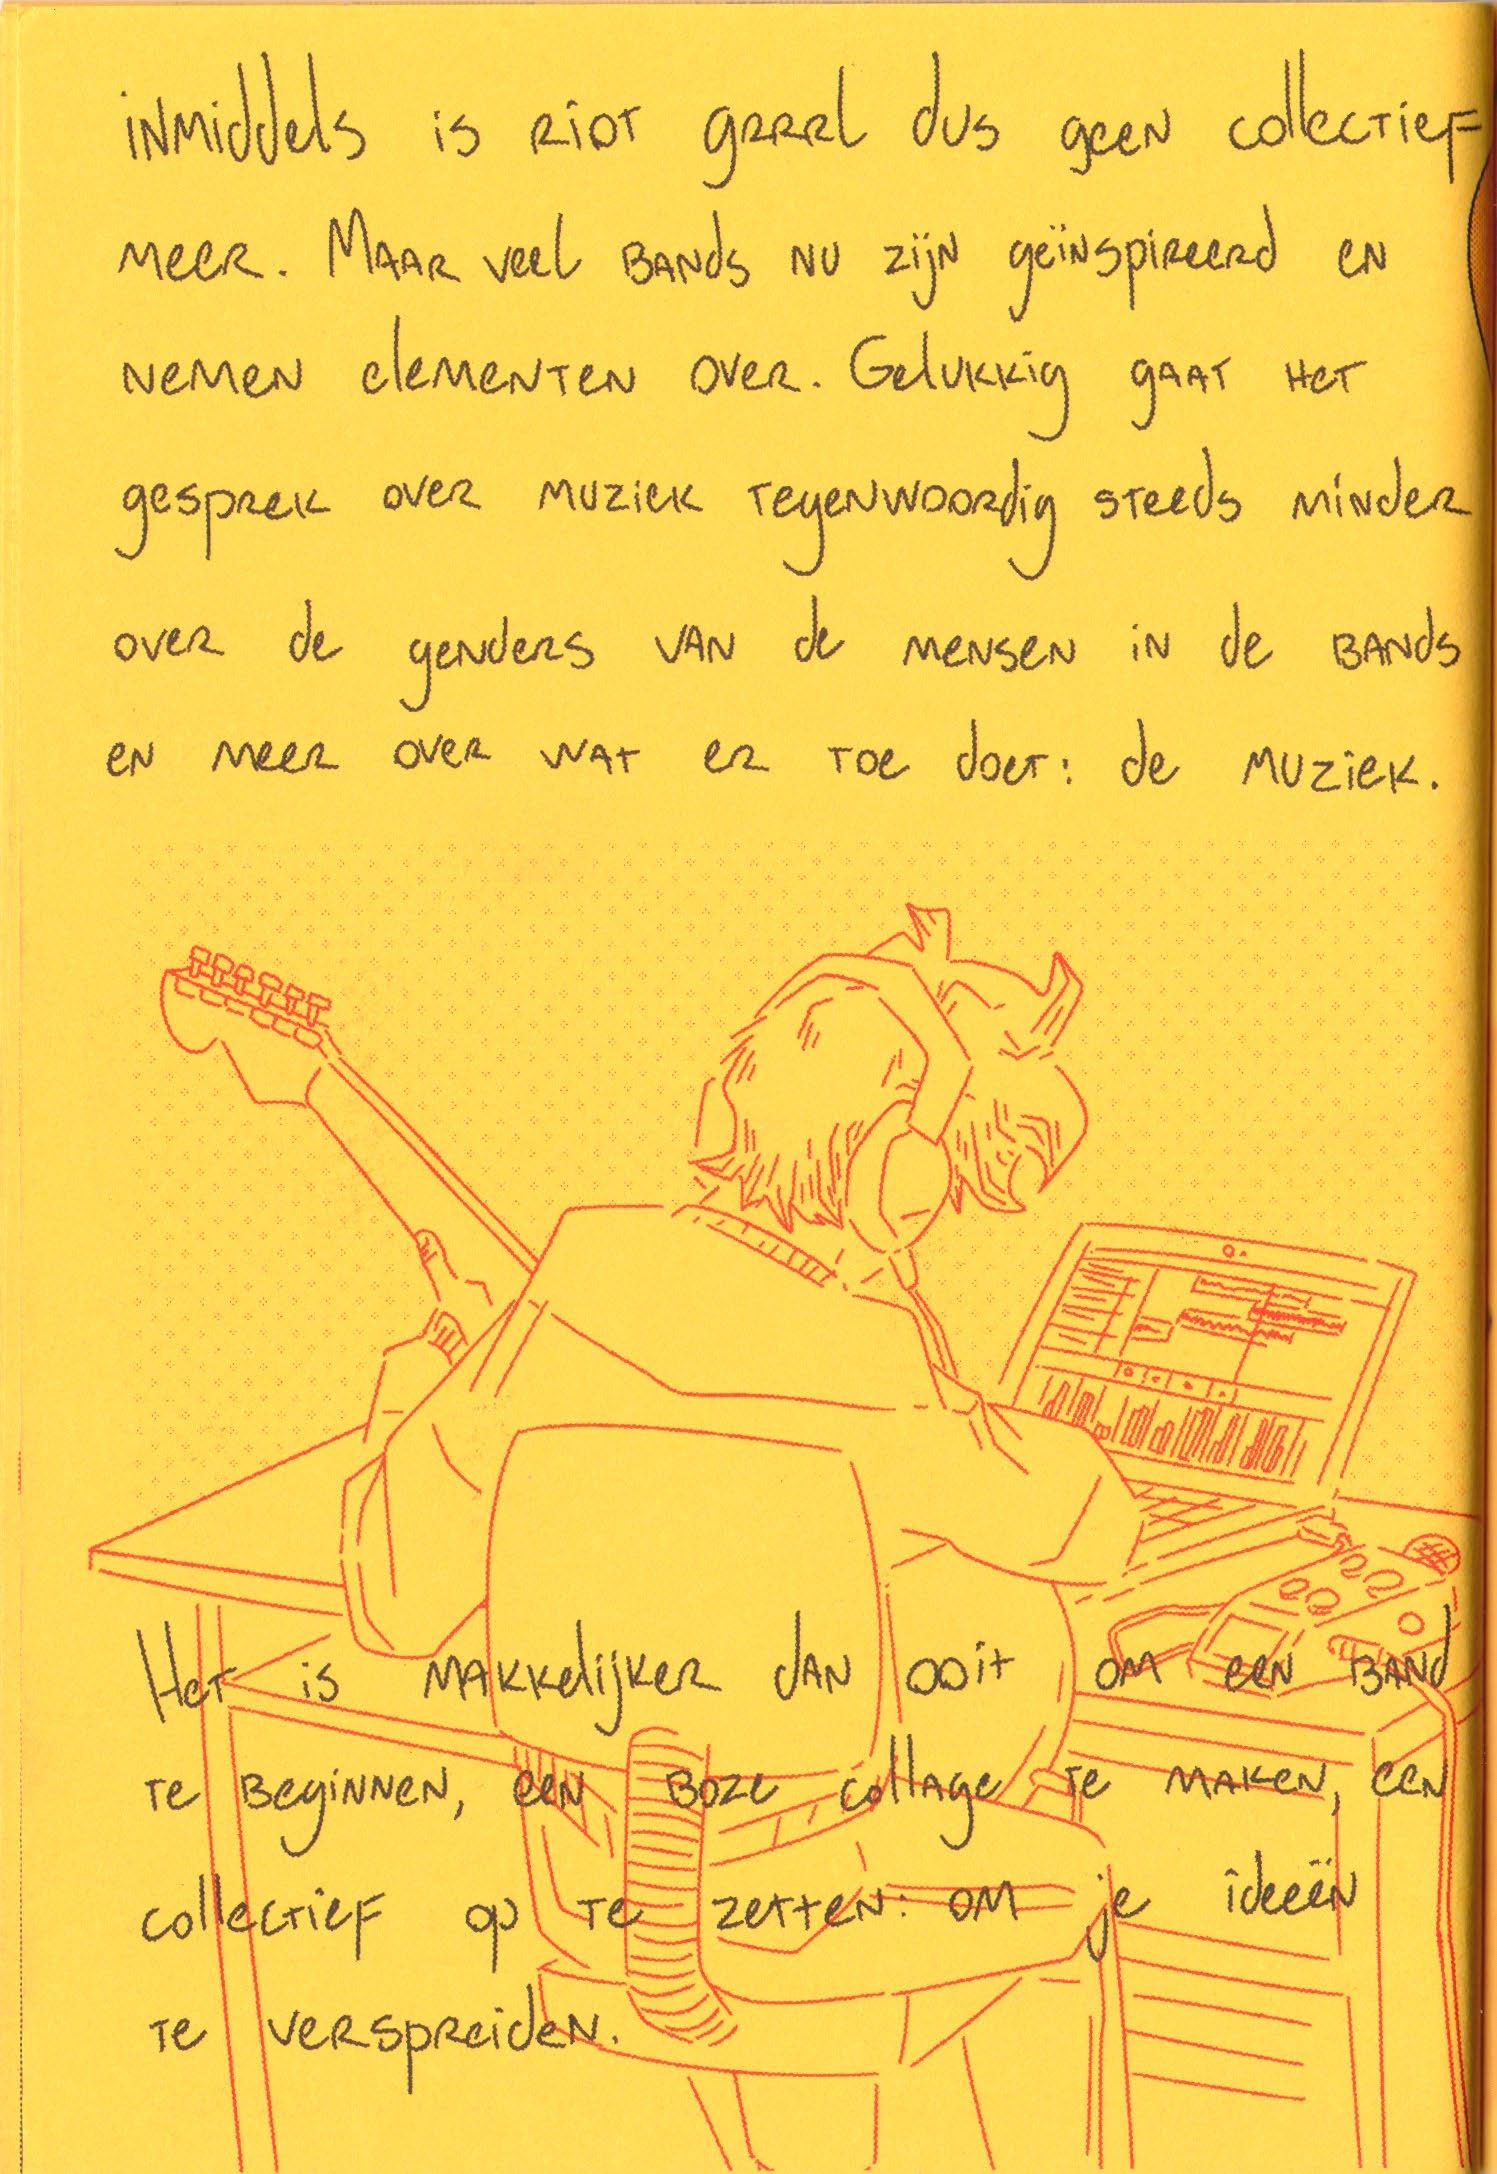 inmiddels is riot grrrl dus geen collectief
meer. Maar veel bands nu zijn geïnspireerd en
nemen elementen over. Gelukkig gaat het
gesprek over muziek tegenwoordig steeds minder
over de genders van de mensen in de bands
en meer over wat er toe doet: de muziek.
Het is makkelijker dan ooit om een band
te beginnen, een boze collage te maken, een
collectief op te zetten: om je ideeën
te verspreiden.